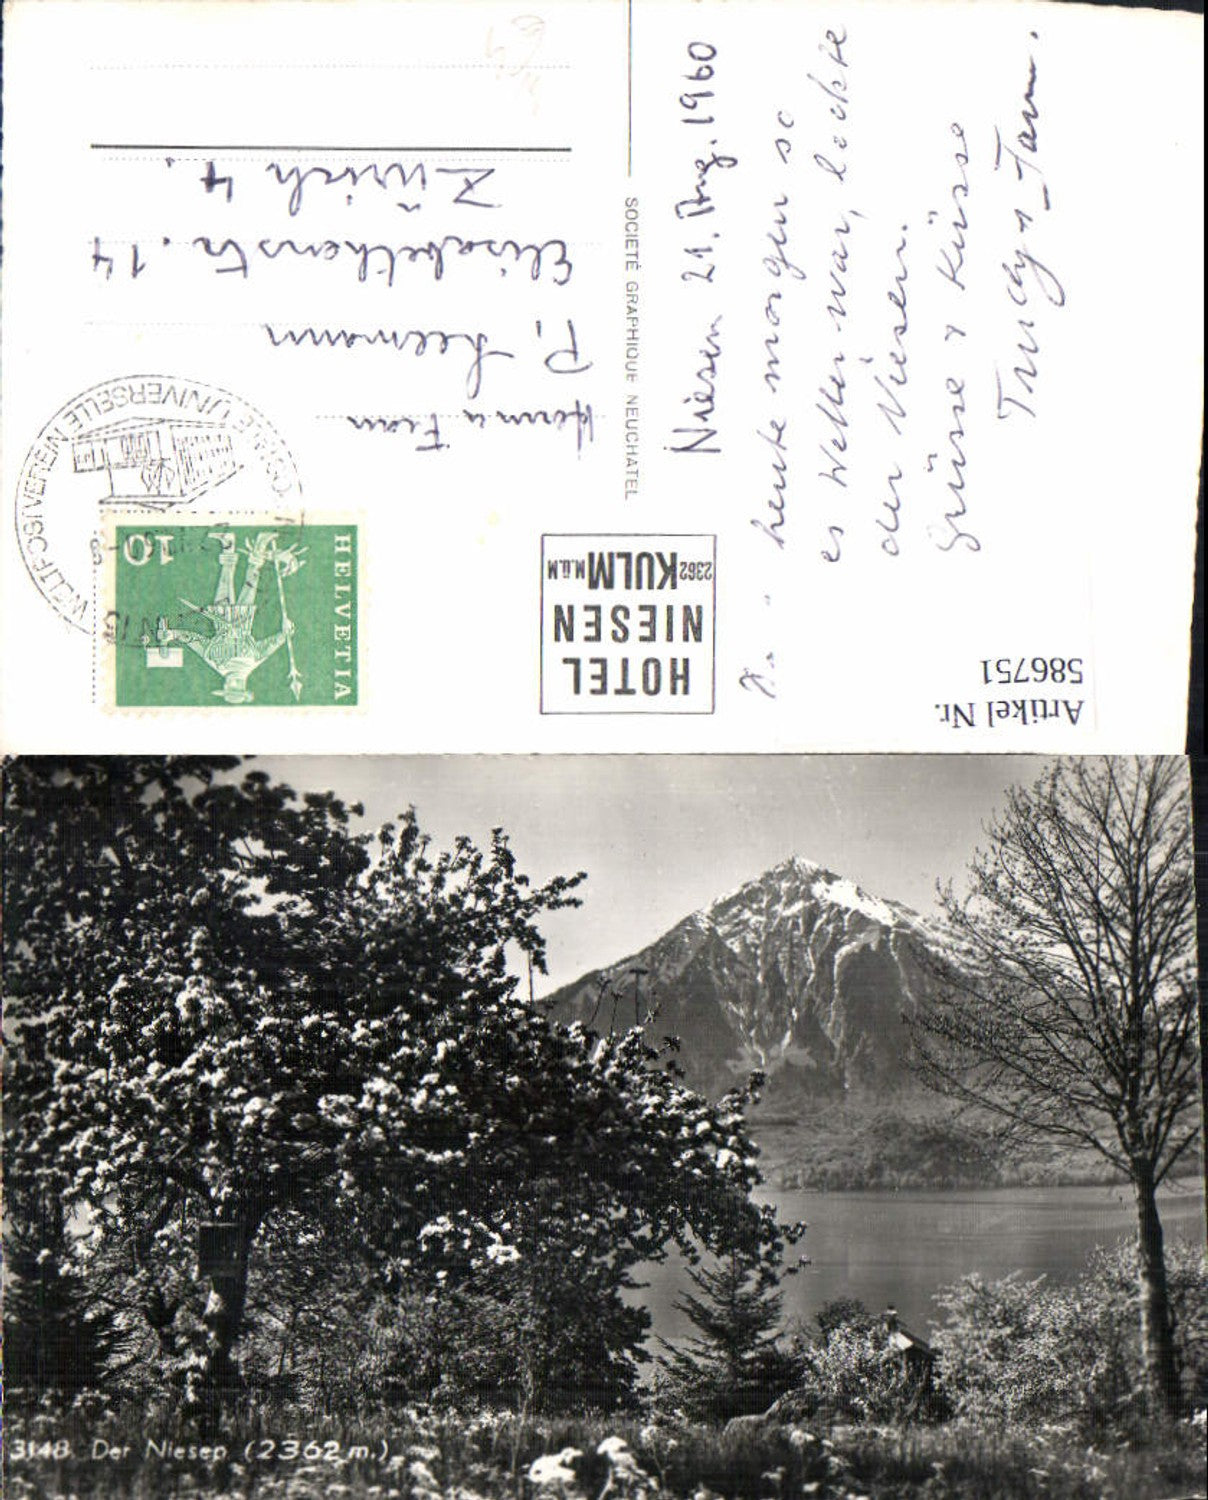 Niesen 21. Aug. 1960
heute morgen so
Wetter war, lockte
der Niesen.
Grüsse & Küsse
Trudy +
SOCIÉTÉ GRAPHIQUE NEUCHATEL
Herrn u Frau
P. Leemann
Elisabethenstr. 14
Zürich 4.
WELTPOSTVEREIN UNIVERSELLE
HELVETIA
10
HOTEL
NIESEN
2362 KULM M.ü.M
Artikel Nr.
586751
3148. Der Niesen (2362 m.)